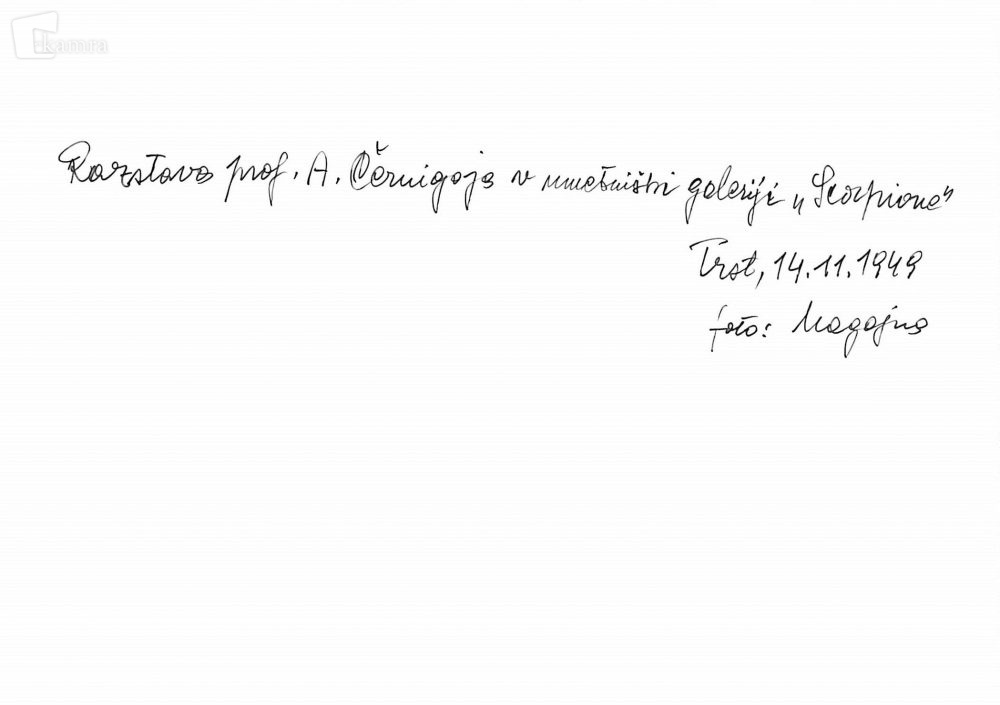 kamra
Razstava prof. A. Černigoja v umetniški galeriji „Scorpione"
Trst, 14.11.1949
foto: Magajna